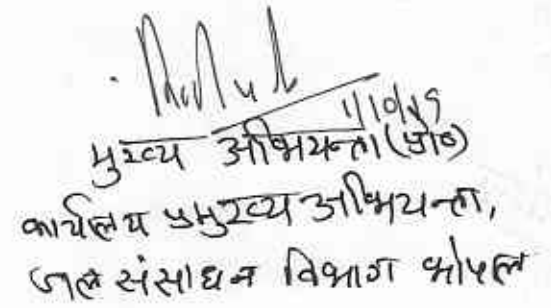 1/10/19
मुख्य अभियन्ता (प्रो०)
कार्यालय प्रमुख अभियन्ता,
जल संसाधन विभाग भोपाल